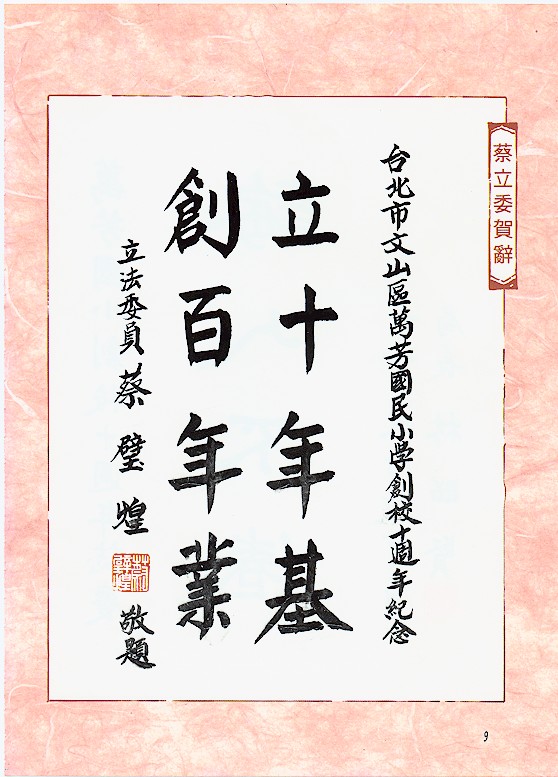 蔡立委賀辭
台北市文山區萬芳國民小学創校十週年紀念
立十年基
創百年業
立法委員 蔡璧煌 敬題
9